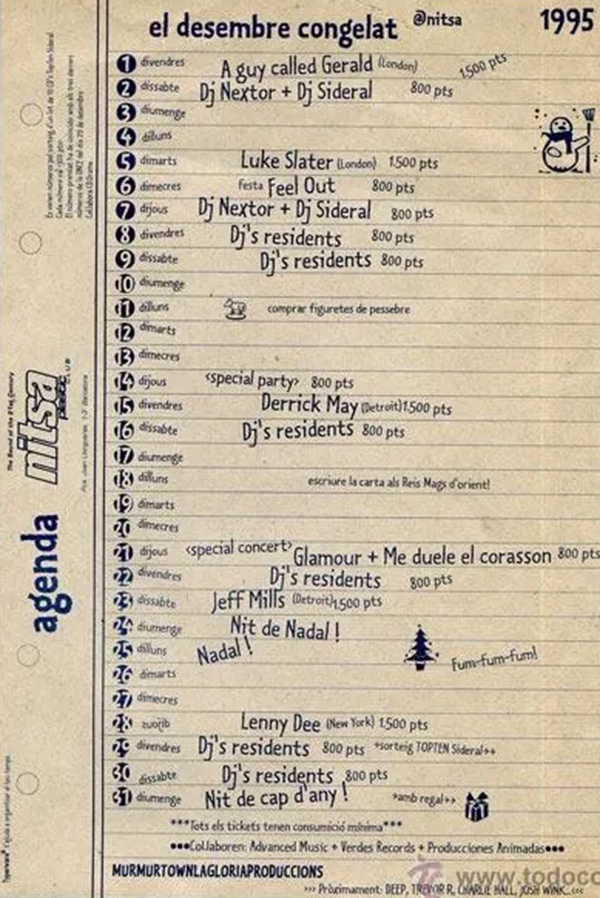 el desembre congelat @nitsa 1995
1 divendres A guy called Gerald (London) 1.500 pts
2 dissabte Dj Nextor + Dj Sideral 800 pts
3 diumenge
4 dilluns
5 dimarts Luke Slater (London) 1.500 pts
6 dimecres festa Feel Out 800 pts
7 dijous Dj Nextor + Dj Sideral 800 pts
8 divendres Dj's residents 800 pts
9 dissabte Dj's residents 800 pts
10 diumenge
11 dilluns comprar figuretes de pessebre
12 dimarts
13 dimecres
14 dijous <special party> 800 pts
15 divendres Derrick May (Detroit) 1.500 pts
16 dissabte Dj's residents 800 pts
17 diumenge
18 dilluns escriure la carta als Reis Mags d'orient!
19 dimarts
20 dimecres
21 dijous <special concert> Glamour + Me duele el corasson 800 pts
22 divendres Dj's residents 800 pts
23 dissabte Jeff Mills (Detroit) 1.500 pts
24 diumenge Nit de Nadal !
25 dilluns Nadal ! Fum-fum-fum!
26 dimarts
27 dimecres
28 dijous Lenny Dee (New York) 1.500 pts
29 divendres Dj's residents 800 pts *sorteig TOPTEN Sideral*
30 dissabte Dj's residents 800 pts
31 diumenge Nit de cap d'any ! *amb regal*
***Tots els tickets tenen consumició mínima***
•••Col.laboren: Advanced Music + Verdes Records + Producciones Animadas•••
MURMURTOWNLAGLORIAPRODUCCIONS
>>> Pròximament: DEEP, TREVOR R, CHARLIE HALL, JOSH WINK...<<<
www.todoco
The Sound of the 21sq Century
nitsa
club
agenda